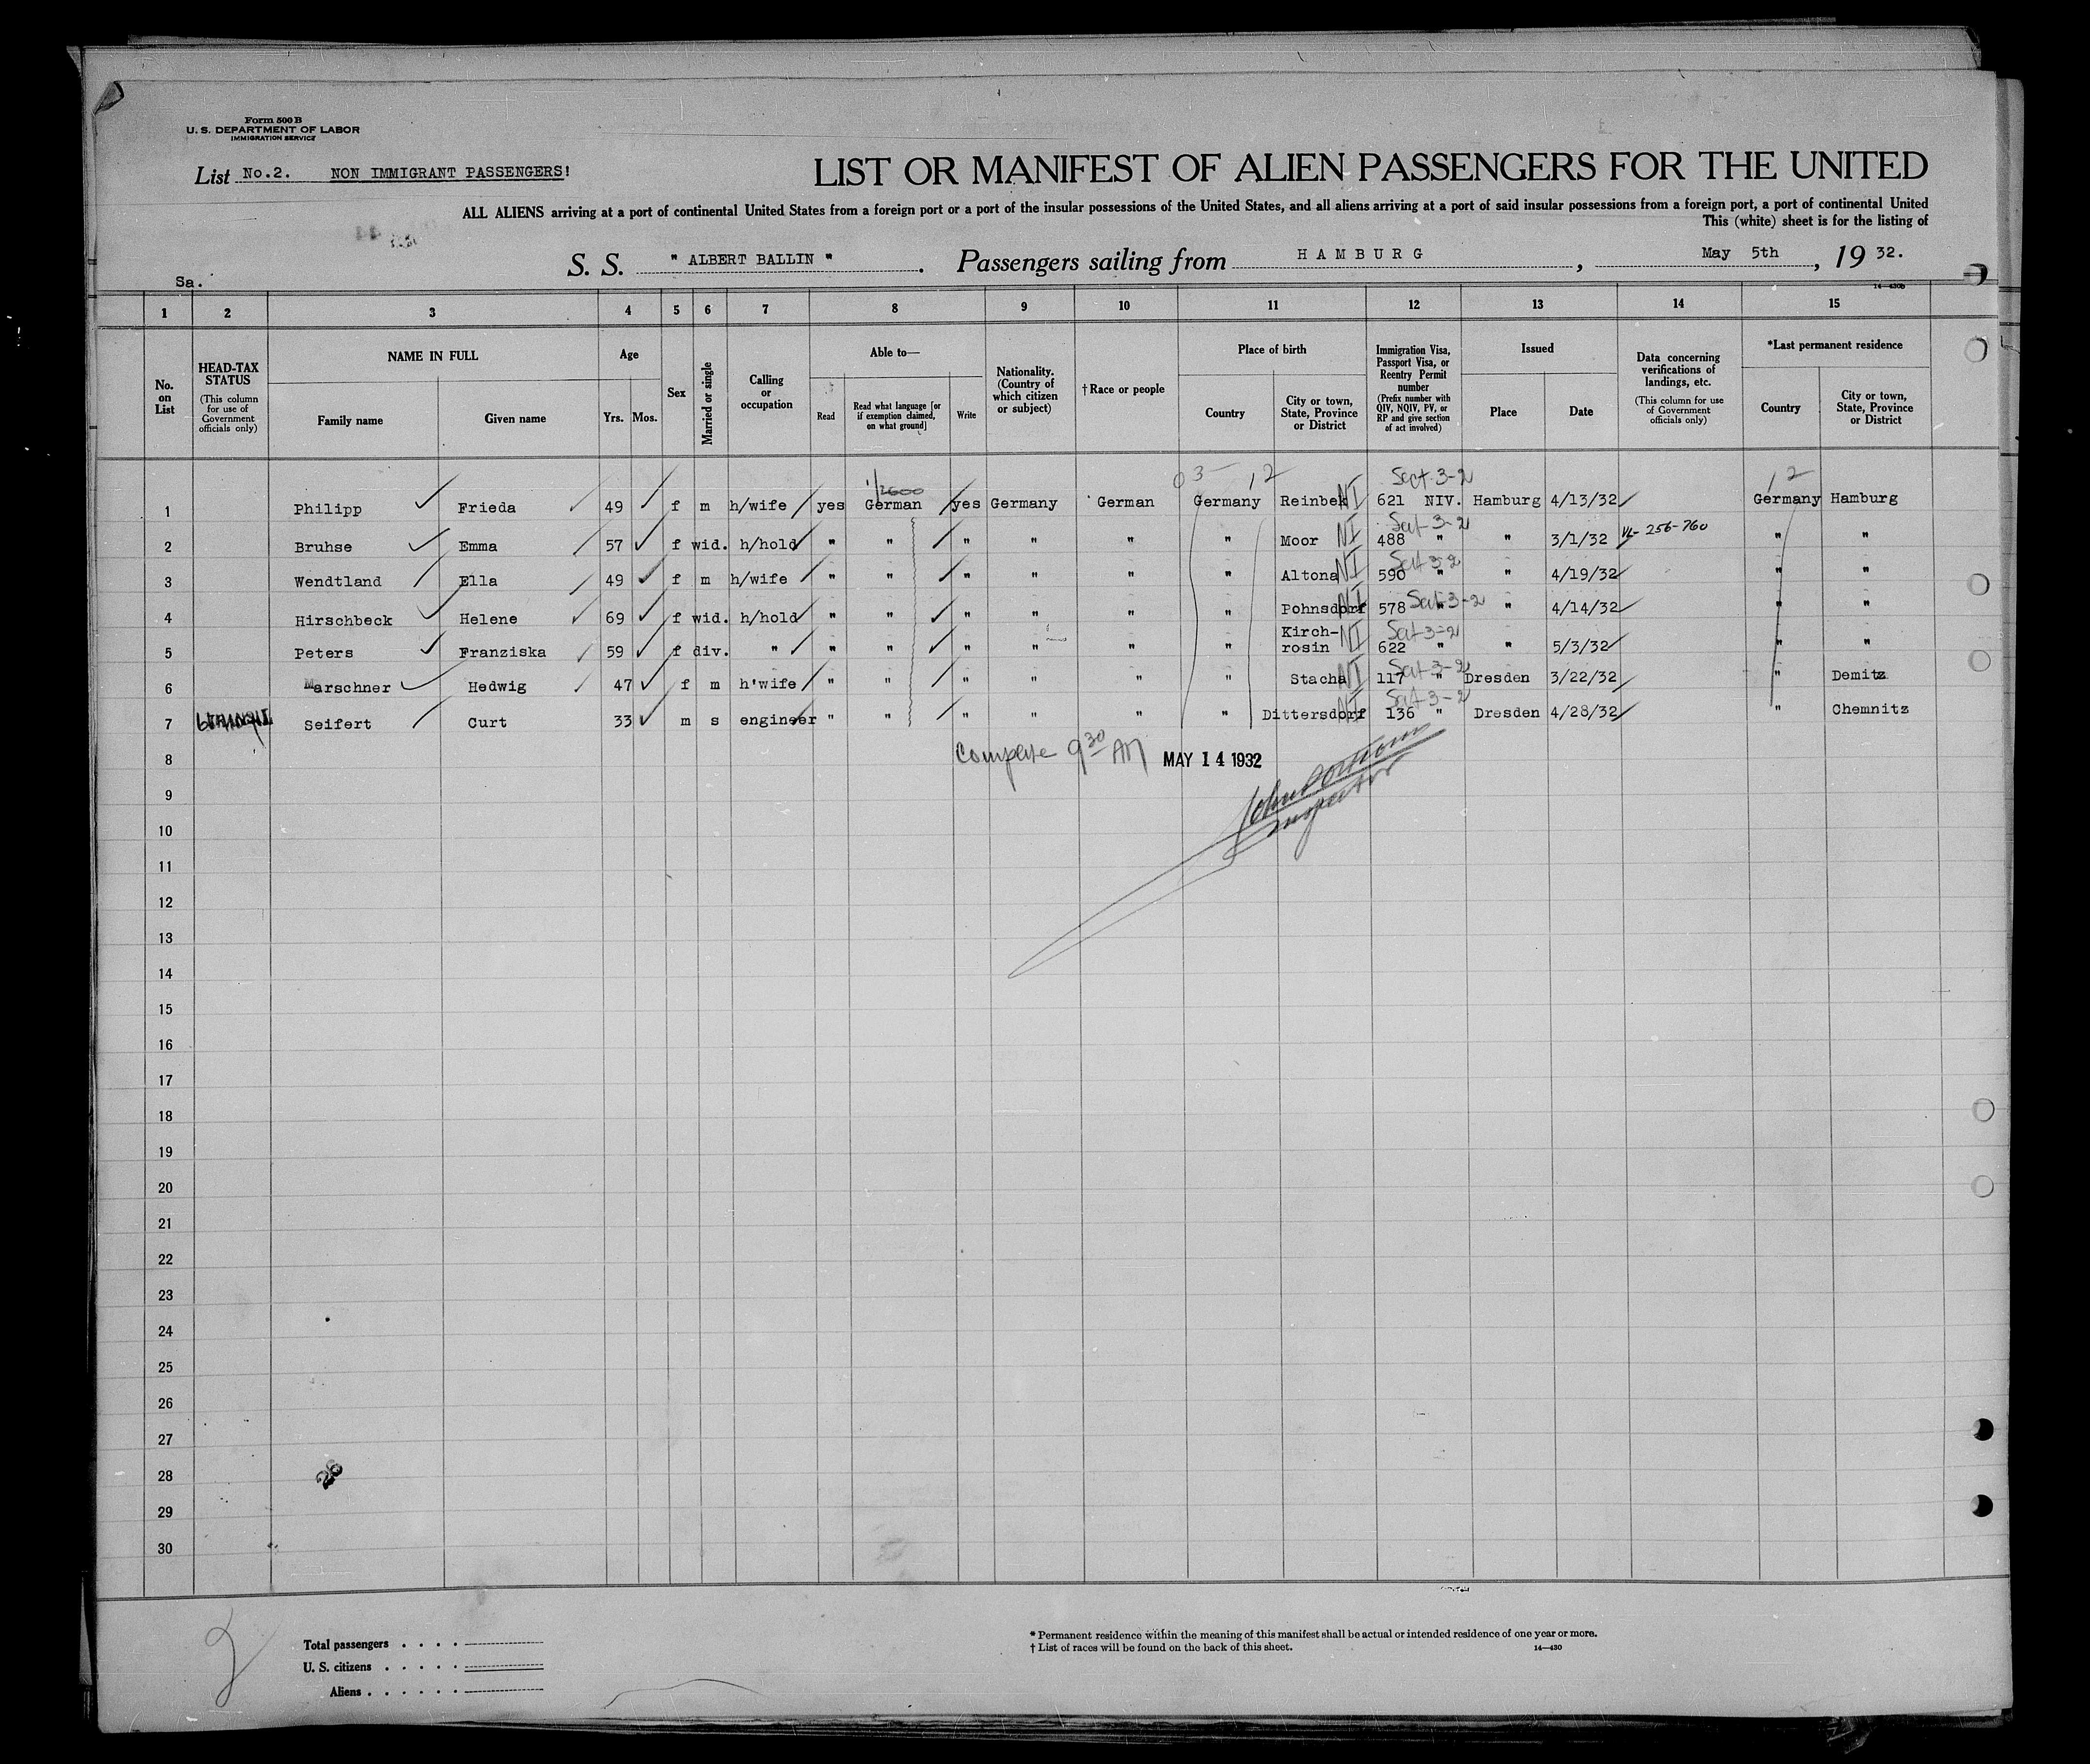 Form 500 B
U. S. DEPARTMENT OF LABOR
IMMIGRATION SERVICE
List No.2. NON IMMIGRANT PASSENGERS!
LIST OR MANIFEST OF ALIEN PASSENGERS FOR THE UNITED
ALL ALIENS arriving at a port of continental United States from a foreign port or a port of the insular possessions of the United States, and all aliens arriving at a port of said insular possessions from a foreign port, a port of continental United
This (white) sheet is for the listing of
S. S. " ALBERT BALLIN " . Passengers sailing from HAMBURG , May 5th , 19 32.
Sa.
14—430b
1 2 3 4 5 6 7 8 9 10 11 12 13 14 15
No. on List
HEAD-TAX STATUS (This column for use of Government officials only)
NAME IN FULL
Family name
Given name
Age
Yrs. Mos.
Sex
Married or single
Calling or occupation
Able to—
Read
Read what language [or if exemption claimed, on what ground]
Write
Nationality. (Country of which citizen or subject)
†Race or people
Place of birth
Country
City or town, State, Province or District
Immigration Visa, Passport Visa, or Reentry Permit number (Prefix number with QIV, NQIV, PV, or RP and give section of act involved)
Issued
Place
Date
Data concerning verifications of landings, etc. (This column for use of Government officials only)
*Last permanent residence
Country
City or town, State, Province or District
03 12 Sect 3-2 12
1 Philipp Frieda 49 f m h/wife yes German yes Germany German Germany Reinbek NI 621 NIV. Hamburg 4/13/32 Germany Hamburg
Sect 3-2
2 Bruhse Emma 57 f wid. h/hold " " " " " " Moor NI 488 " " 3/1/32 VL-256-760 " "
Sect 3-2
3 Wendtland Ella 49 f m h/wife " " " " " " Altona NI 590 " " 4/19/32 " "
4 Hirschbeck Helene 69 f wid. h/hold " " " " " " Pohnsdorf NI 578 " Sect 3-2 " 4/14/32 " "
Kirch- NI Sect 3-2
5 Peters Franziska 59 f div. " " " " " " " rosin 622 " " 5/3/32 " "
Sect 3-2
6 Marschner Hedwig 47 f m h'wife " " " " " " Stacha NI 117 " Dresden 3/22/32 " Demitz
Sect 3-2
7 Seifert Curt 33 m s engineer " " " " " " Dittersdorf NI 136 " Dresden 4/28/32 " Chemnitz
8 Complete 9 30 AM MAY 14 1932
9
10 Inspector
11
12
13
14
15
16
17
18
19
20
21
22
23
24
25
26
27
28 26
29
30
2
Total passengers . . . .
U. S. citizens . . . . .
Aliens . . . . . .
* Permanent residence within the meaning of this manifest shall be actual or intended residence of one year or more.
† List of races will be found on the back of this sheet. 14—430